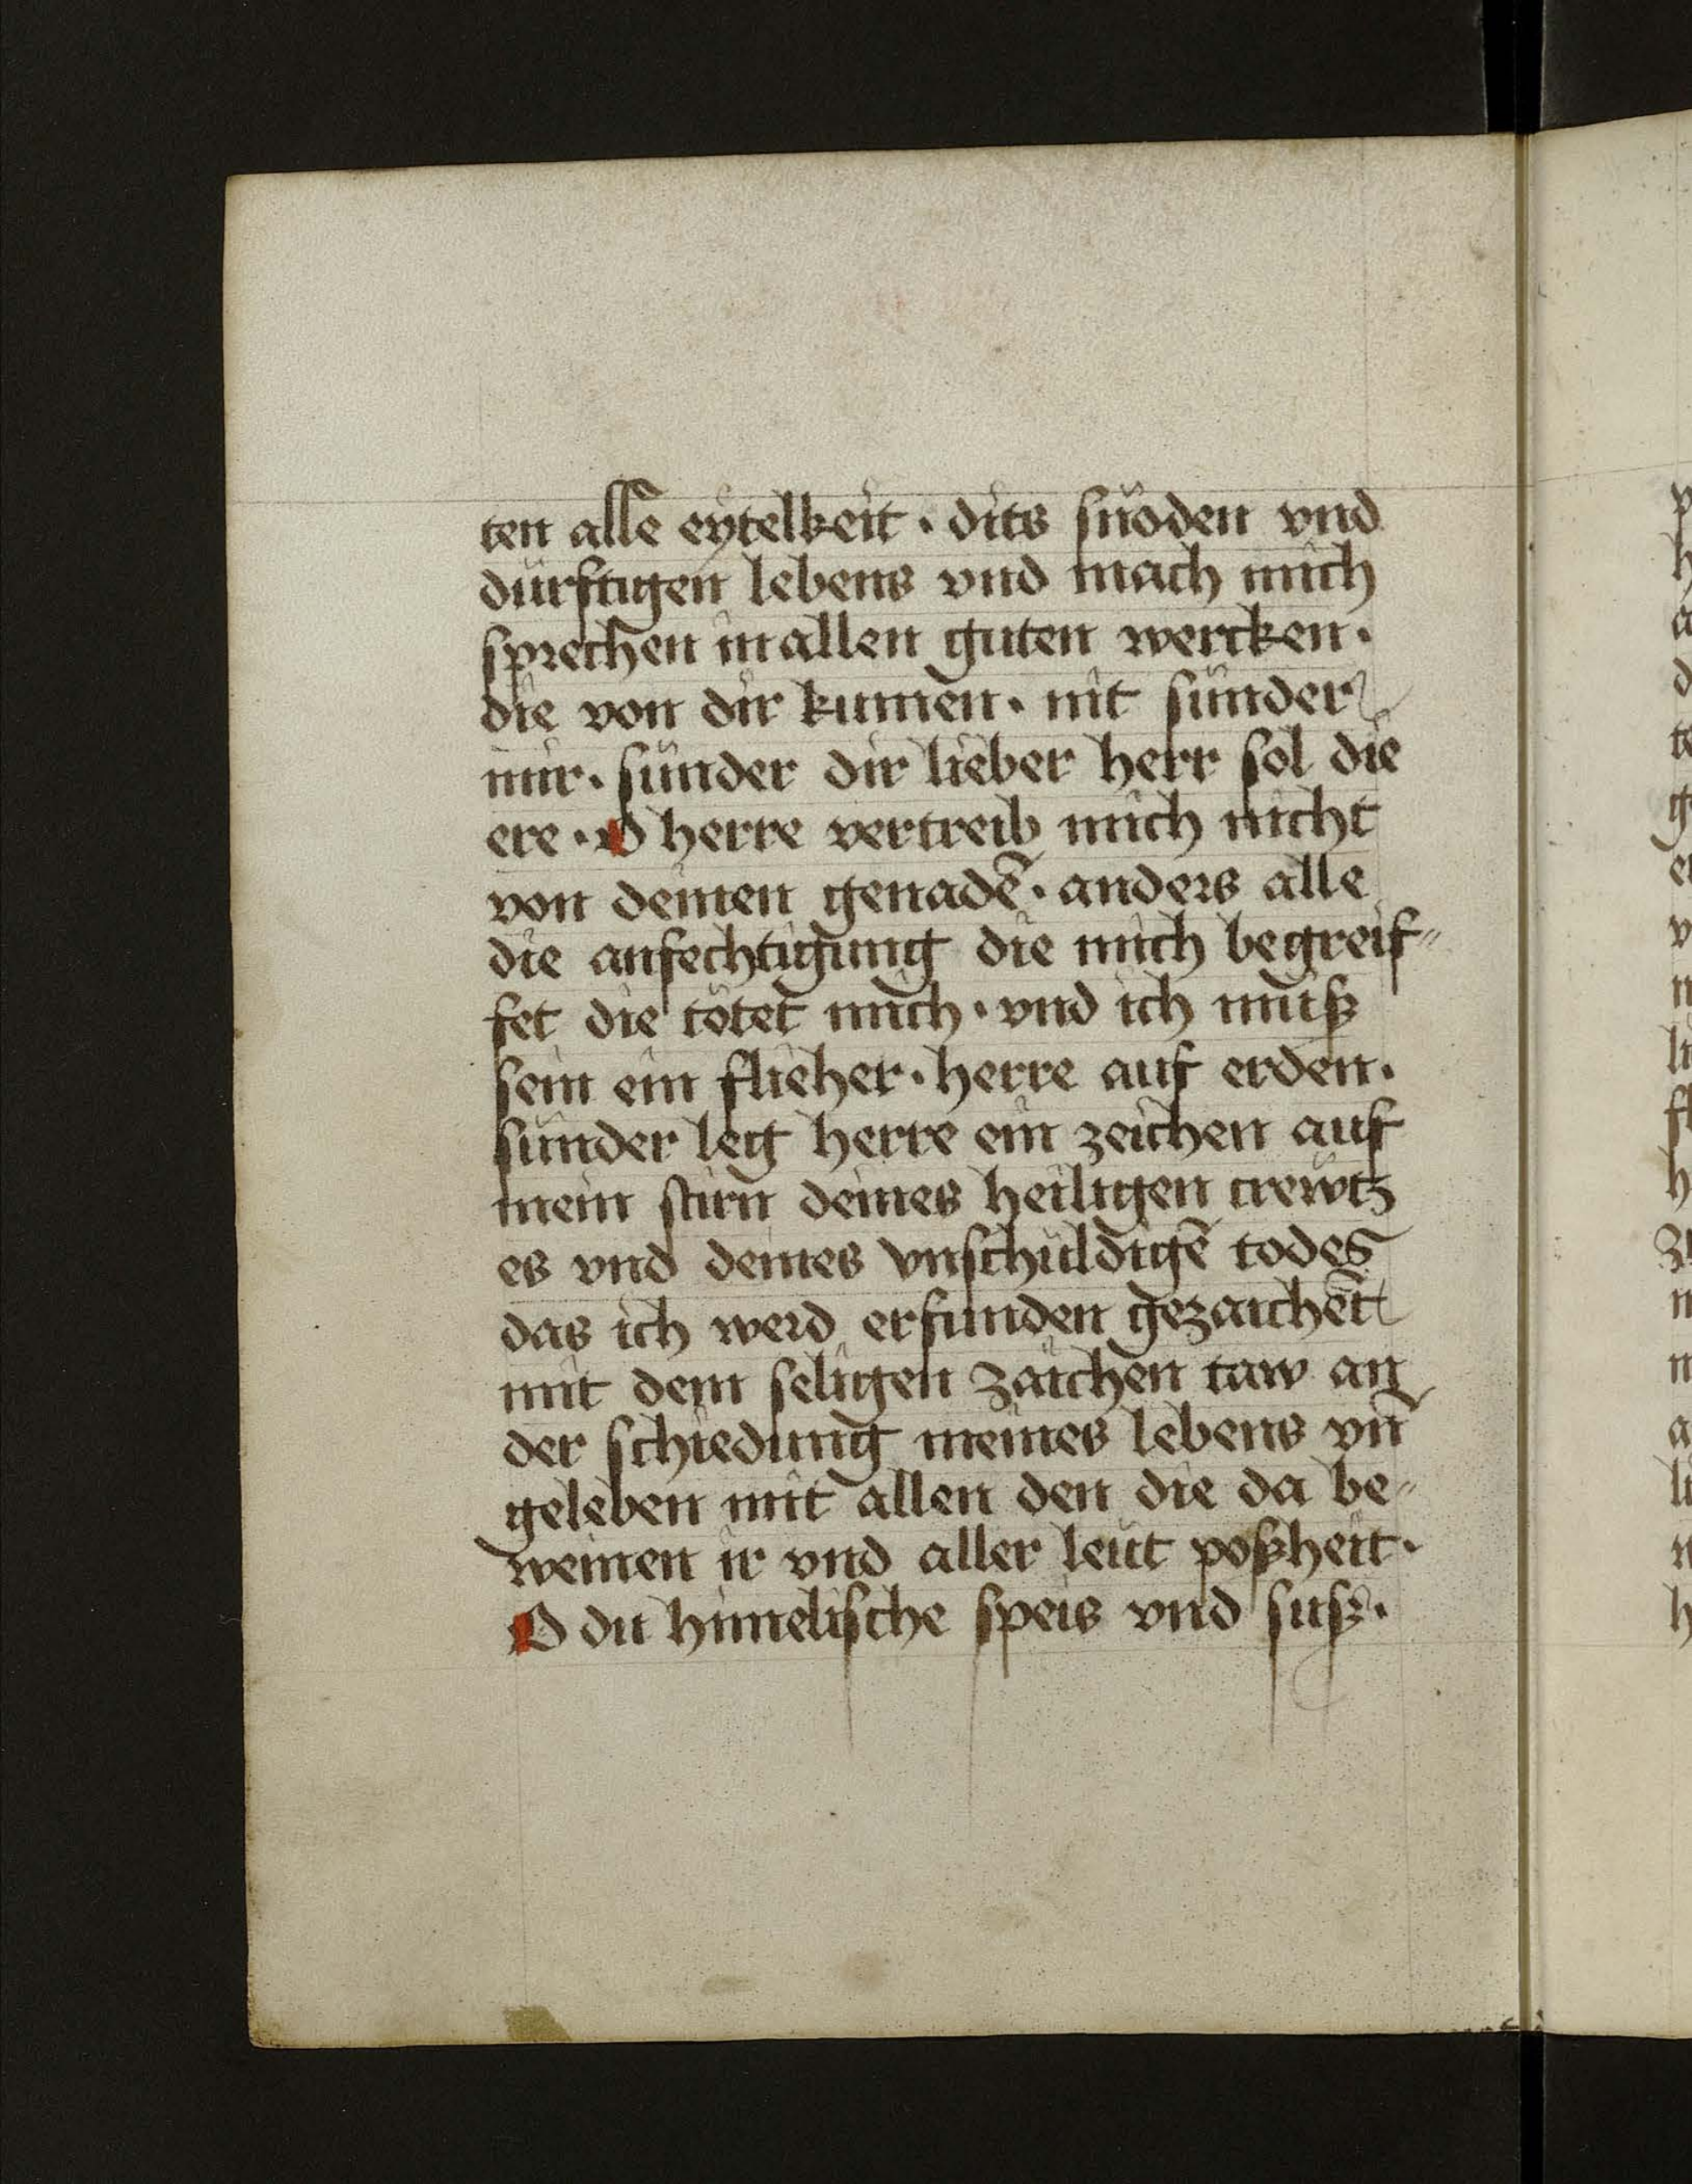 ten alle eytelkeit · dits snöden vnd
dürftigen lebens vnd mach mich
sprechen in allen guten wercken ·
die von dir kumen · nit sünder
mir · sünder dir lieber herr sol die
ere · O herre vertreib mich nicht
von deinen genadē · anders alle
die anfechtigung die mich begreif⸗
fet die tötet mich · vnd ich muß
sein ein flieher · herre auf erden ·
sünder leg herre ein zeichen auf
mein stirn deines heiligen crewtz
es vnd deines vnschuldigē todes
das ich werd erfunden gezaichēt
mit dem seligen zaichen taw an
der schiedung meines lebens vn̄
geleben mit allen den die da be⸗
weinen ir vnd aller leüt poßheit ·
O du himelische speis vnd süß ·